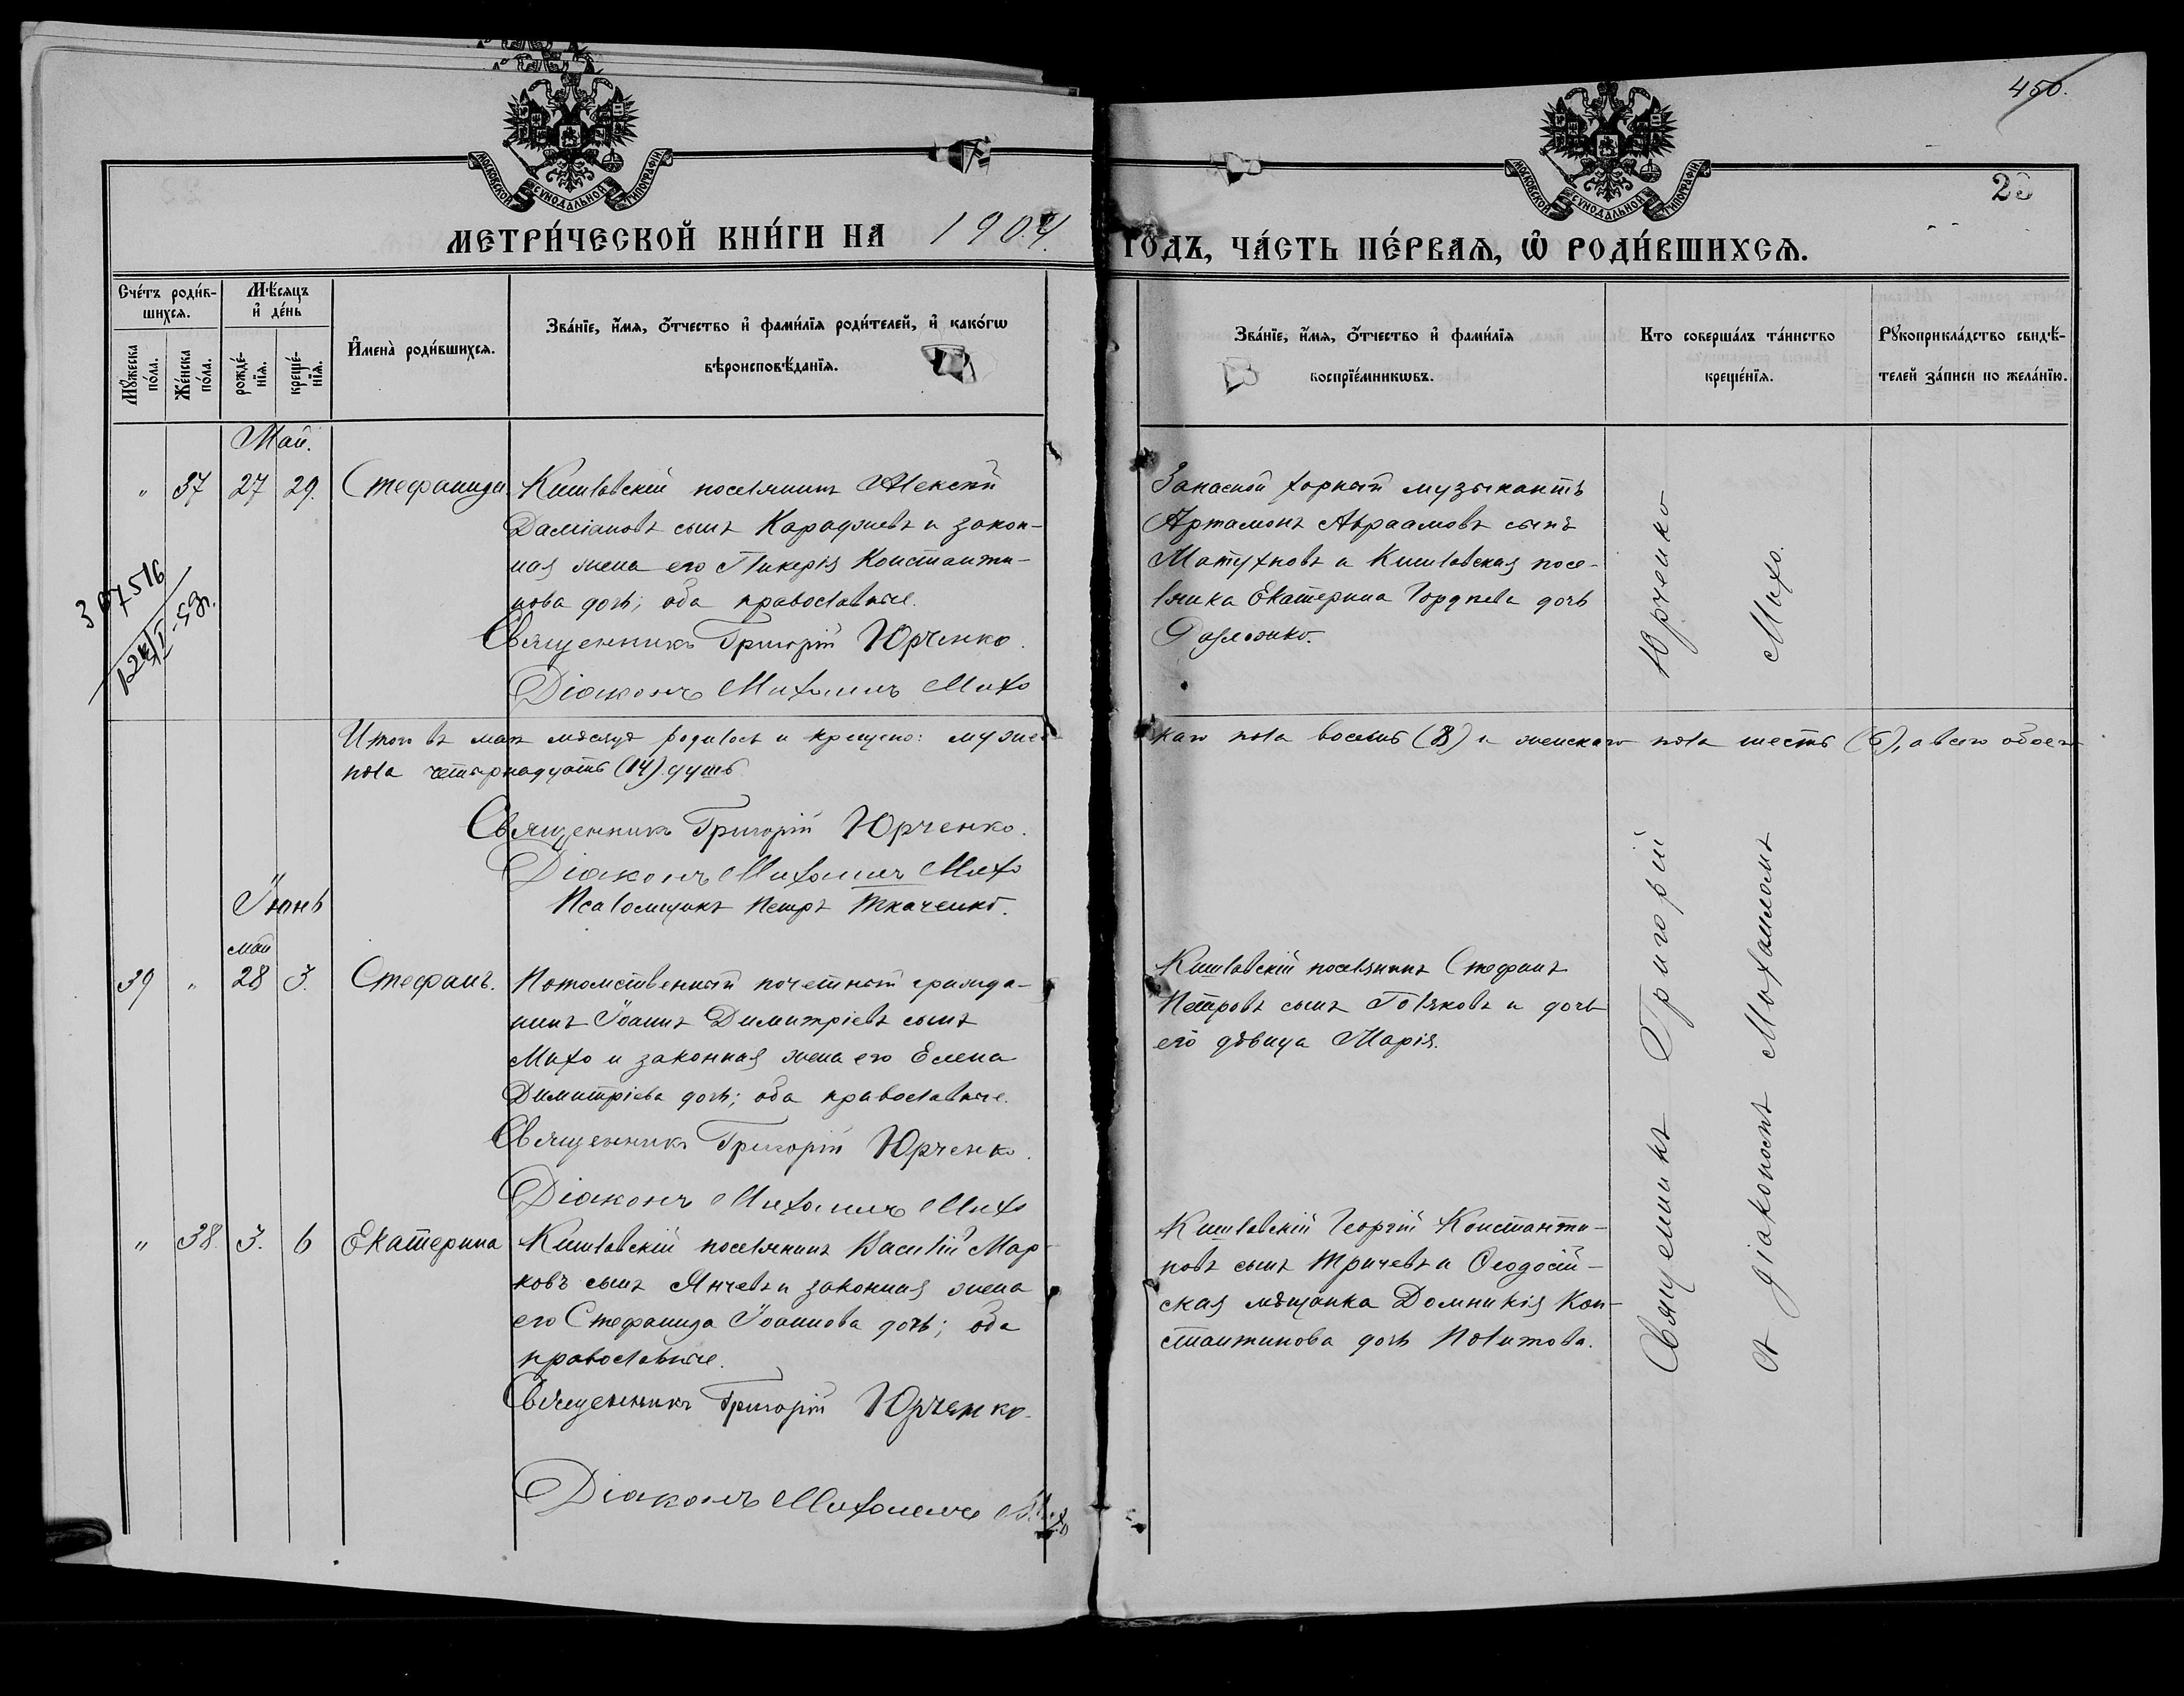 450.
23
МОСКОВСКОЙ СѴНОДАЛЬНОЙ ТИПОГРАФІИ
МОСКОВСКОЙ СѴНОДАЛЬНОЙ ТИПОГРАФІИ
МЕТРИ́ЧЕСКОЙ КНИ́ГИ НА 1904. ГОДЪ, ЧА́СТЬ ПЕ́РВАЯ, Ѽ РОДИ́ВШИХСЯ.
Сче́тъ роди́вшихся.
Мꙋ́жеска по́ла.
Же́нска по́ла.
Мѣ́сяцъ и҆ де́нь
рожде́нїя.
креще́нїя.
И҆мена̀ роди́вшихся.
Зва́нїе, и҆́мя, ѻ҆́тчество и҆ фами́лїя роди́телей, и҆ како́гѡ
вѣроисповѣ́данїя.
Зва́нїе, и҆́мя, ѻ҆́тчество и҆ фами́лїя
воспрїе́мникѡвъ.
Кто соверша́лъ та́инство
креще́нїя.
Рꙋкоприкла́дство свидѣ́-
телей за́писи по жела́нїю.
Май.
" 37 27 29. Стефанида.
Кишлавскій поселянинъ Алексѣй
Даміановъ сынъ Караджевъ и закон-
ная жена его Гликерія Константи-
нова дочь; оба православные.
Священникъ Григорій Юрченко.
Діаконъ Михаилъ Михо
Запасной хорный музыкантъ
Артамонъ Авраамовъ сынъ
Матухновъ и Кишлавская посе-
лянка Екатерина Гордѣева дочь
307516
12/I-53г.
Итого въ маѣ мѣсяцѣ родилось и крещено: мужес-
каго пола восемь (8) и женскаго пола шесть (6), а всего обоего
пола четырнадцать (14) душъ.
Священникъ Григорій Юрченко.
Діаконъ Михаилъ Михо
Псаломщикъ Петръ Ткаченко.
Іюнь
май
39 " 28 3. Стефанъ.
Потомственный почетный гражда-
нинъ Іоаннъ Димитріевъ сынъ
Михо и законная жена его Елена
Димитріева дочь; оба православные.
Священникъ Григорій Юрченко.
Діаконъ Михаилъ Михо
Кишлавскій поселянинъ Стефанъ
Петровъ сынъ Голяковъ и дочь
его дѣвица Марія.
" 38. 3. 6 Екатерина
Кишлавскій поселянинъ Василій Мар-
ковъ сынъ Янчевъ и законная жена
его Стефанида Іоаннова дочь; оба
православные.
Священникъ Григорій Юрченко.
Діаконъ Михаилъ Михо
Кишлавскій Георгій Константи-
новъ сынъ Тричевъ и Ѳеодосій-
ская мѣщанка Домникія Кон-
стантинова дочь Политова.
Священникъ Григорій Юрченко
съ діакономъ Михаиломъ Михо.